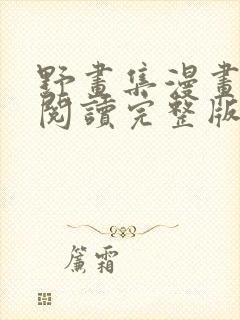 野畫集漫畫
閱讀完整版
簾霜